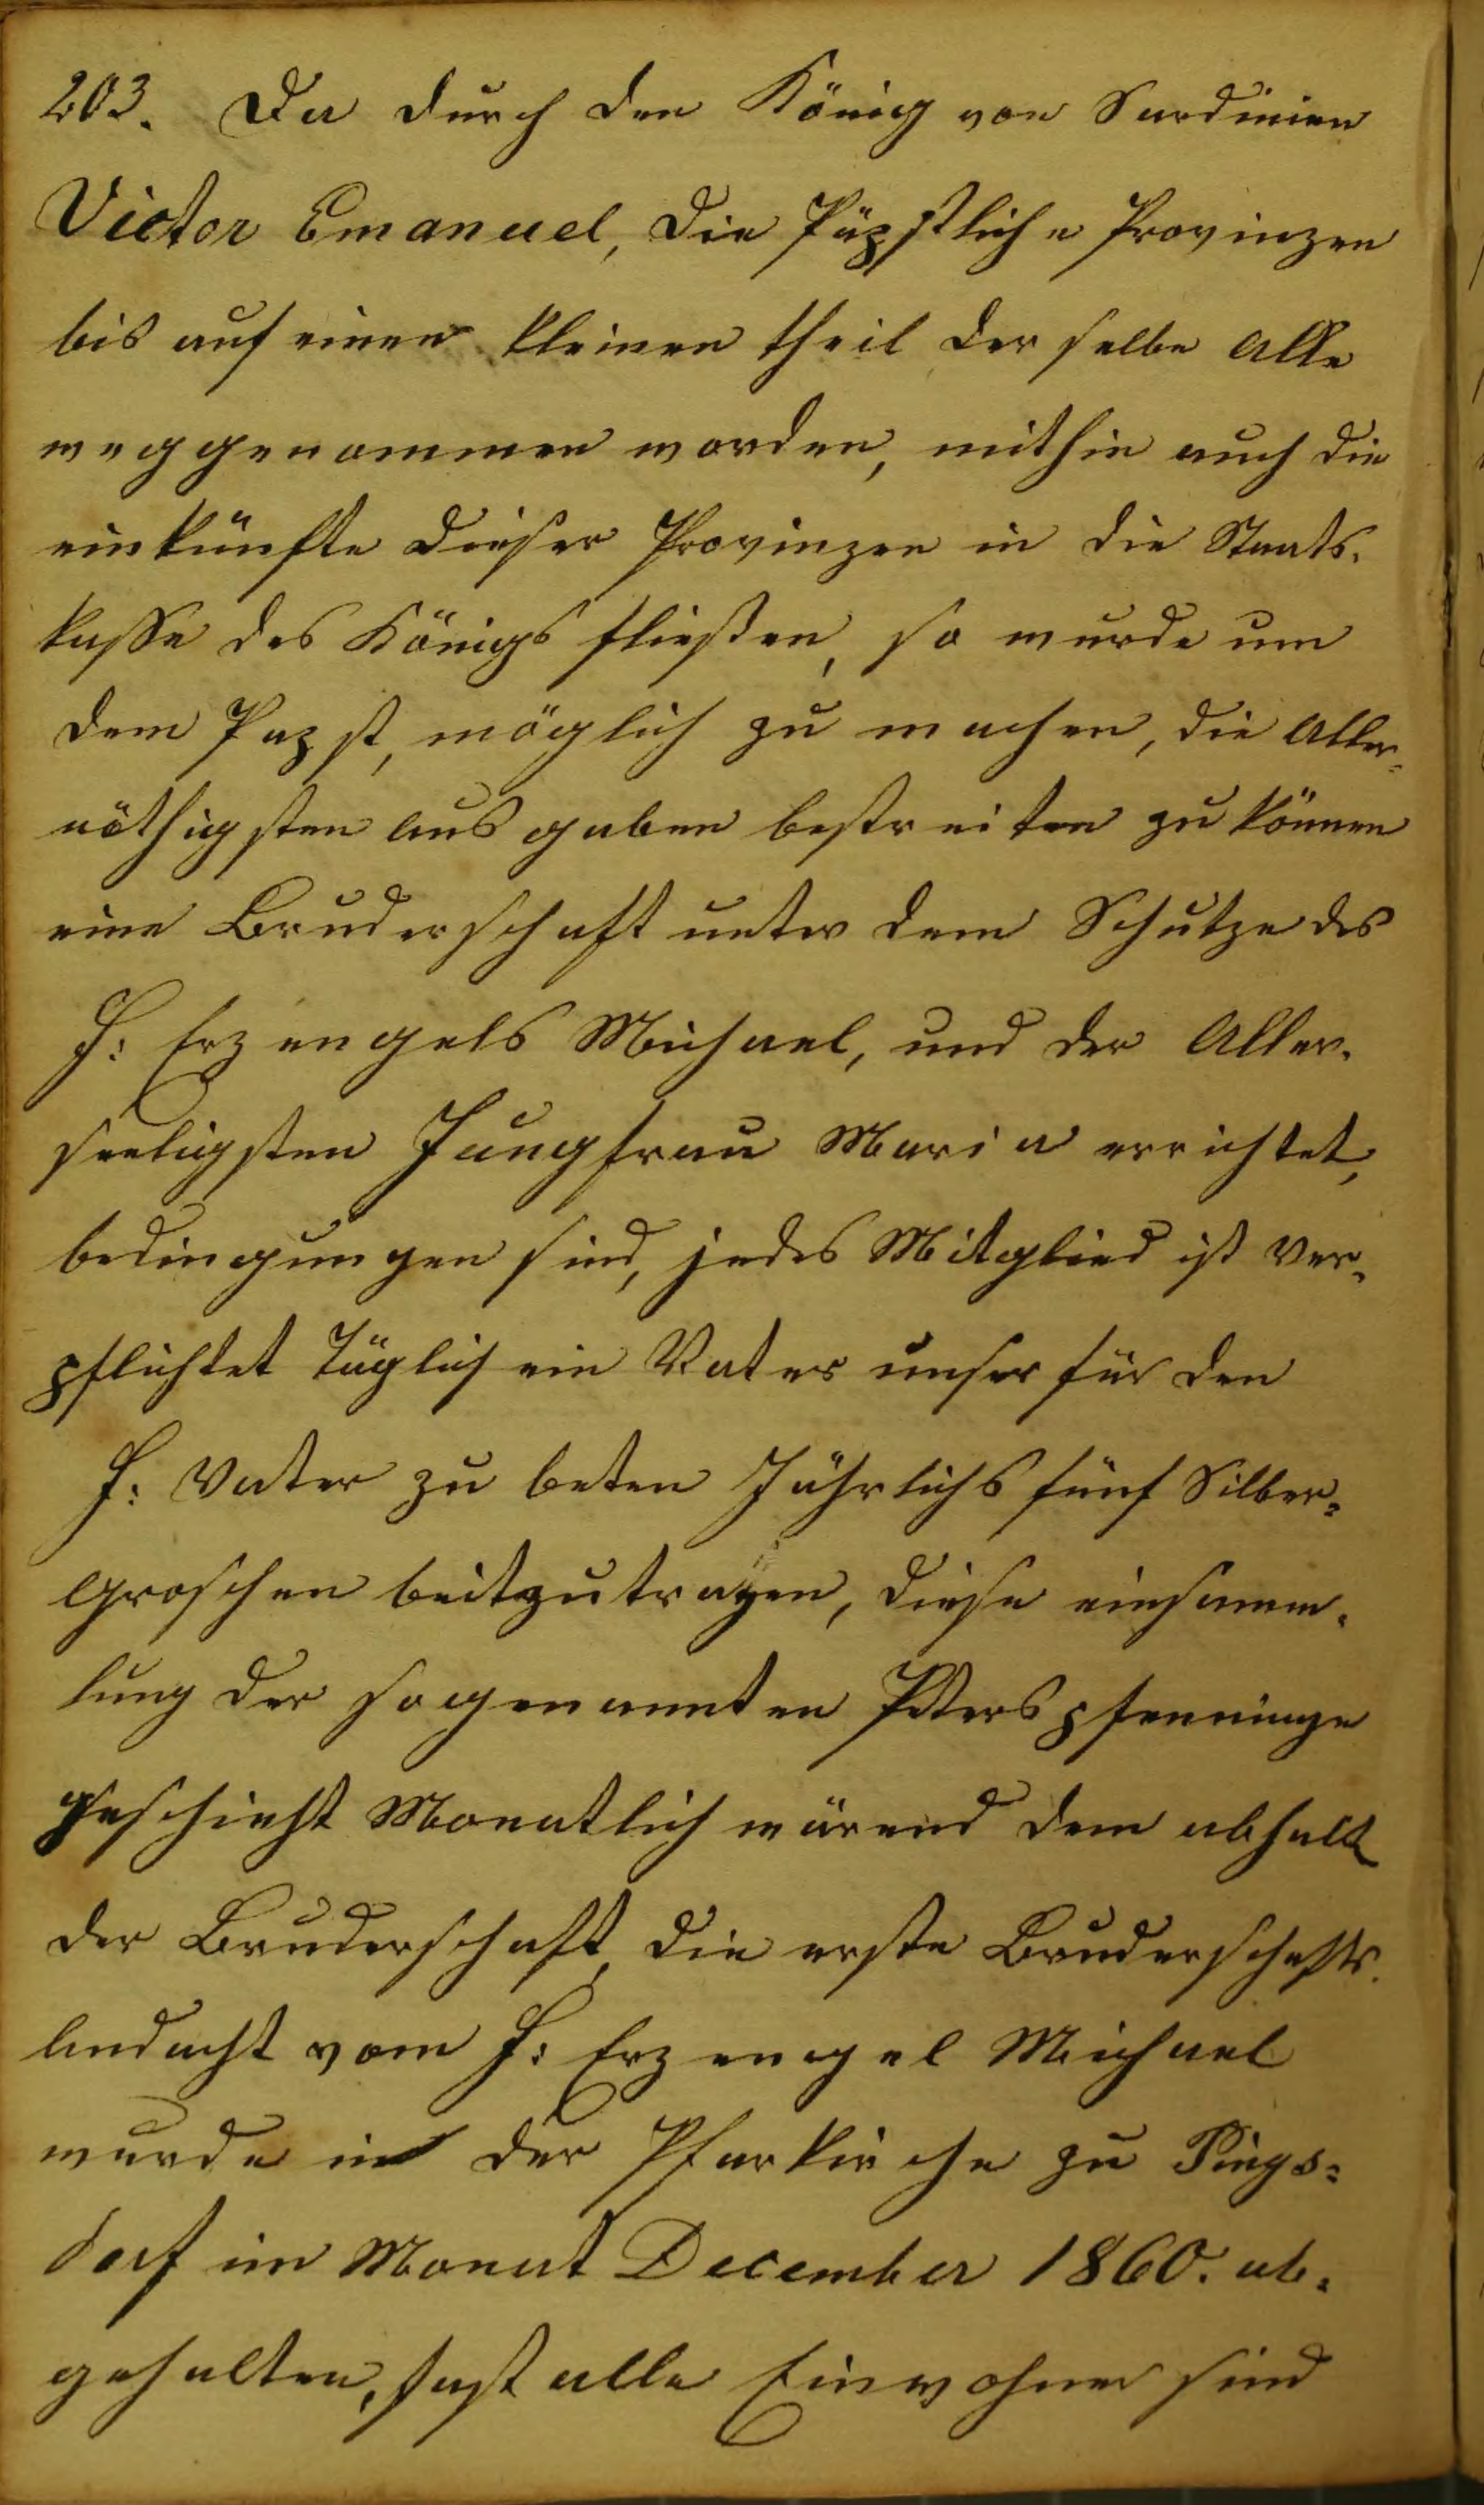 203. Da durch den König von Sardinien
Victor Emanuel, die Päpstliche Provinzen
bis auf einen kleinen theil der selbe Alle
weggenommen worden, mithin auch die
einkünfte dieser Provinzen in die Staats-
kasse des Königs fließen, so wurde um
dem Papst, möglich zu machen, die Aller-
nöthigsten Ausgaben bestreiten zu können
eine Bruderschaft unter dem Schutze des
H: Erzengels Michael, und der Aller-
seeligsten Jungfrau Maria errichtet,
bedingungen sind, jedes Mitglied ist Ver-
pflichtet Täglich ein Vater unser für den
H: Vater zu beten Jährlichs fünf Silber-
Groschen beitzutragen, diese einsamm-
lung der sogenannten Peterspfenninge
geschieht Monatlich wärend dem abhalt
der Bruderschaft, die erste Bruderschafts-
Andacht vom H: Erzengel Michael
wurde in der Pfarkirche zu Pings-
dorf im Monat December 1860. ab-
gehalten, fast alle Einwohner sind